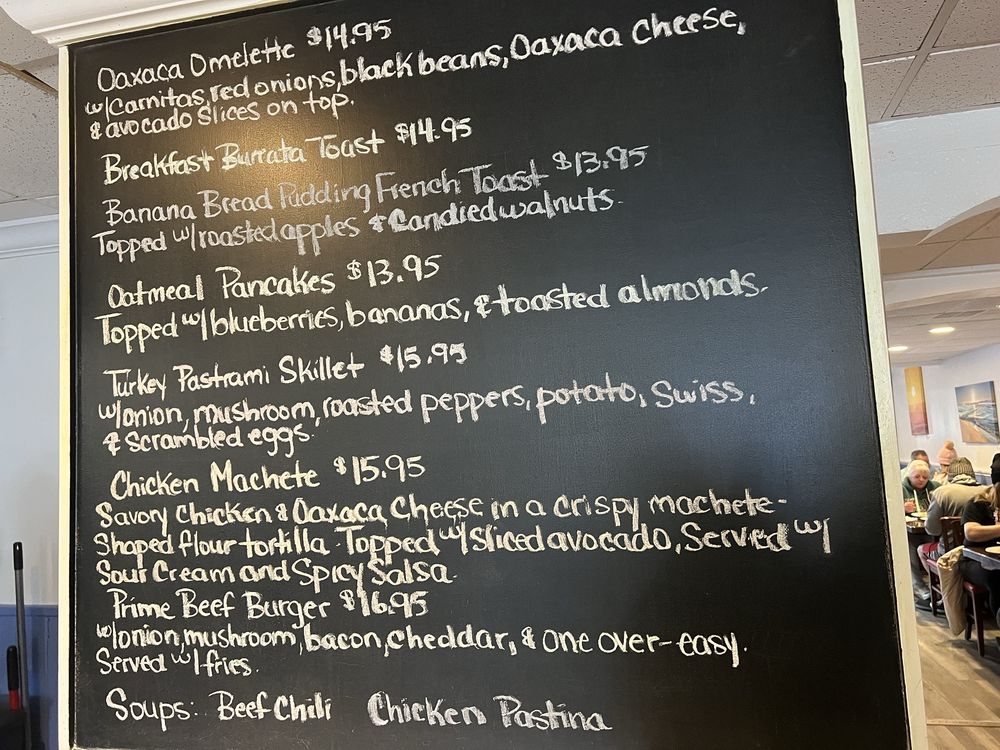 Oaxaca Omelette $14.95
w/Carnitas, red onions, black beans, Oaxaca Cheese,
& avocado slices on top.
Breakfast Burrata Toast $14.95
Banana Bread Pudding French Toast $13.95
Topped w/roasted apples & Candied walnuts.
Oatmeal Pancakes $13.95
Topped w/blueberries, bananas, & toasted almonds.
Turkey Pastrami Skillet $15.95
w/onion, mushroom, roasted peppers, potato, Swiss,
& Scrambled eggs.
Chicken Machete $15.95
Savory Chicken & Oaxaca Cheese in a Crispy machete-
Shaped flour tortilla. Topped w/ Sliced avocado, Served w/
Sour Cream and Spicy Salsa.
Prime Beef Burger $16.95
w/onion, mushroom, bacon, cheddar, & one over-easy.
Served w/fries.
Soups: Beef Chili Chicken Pastina